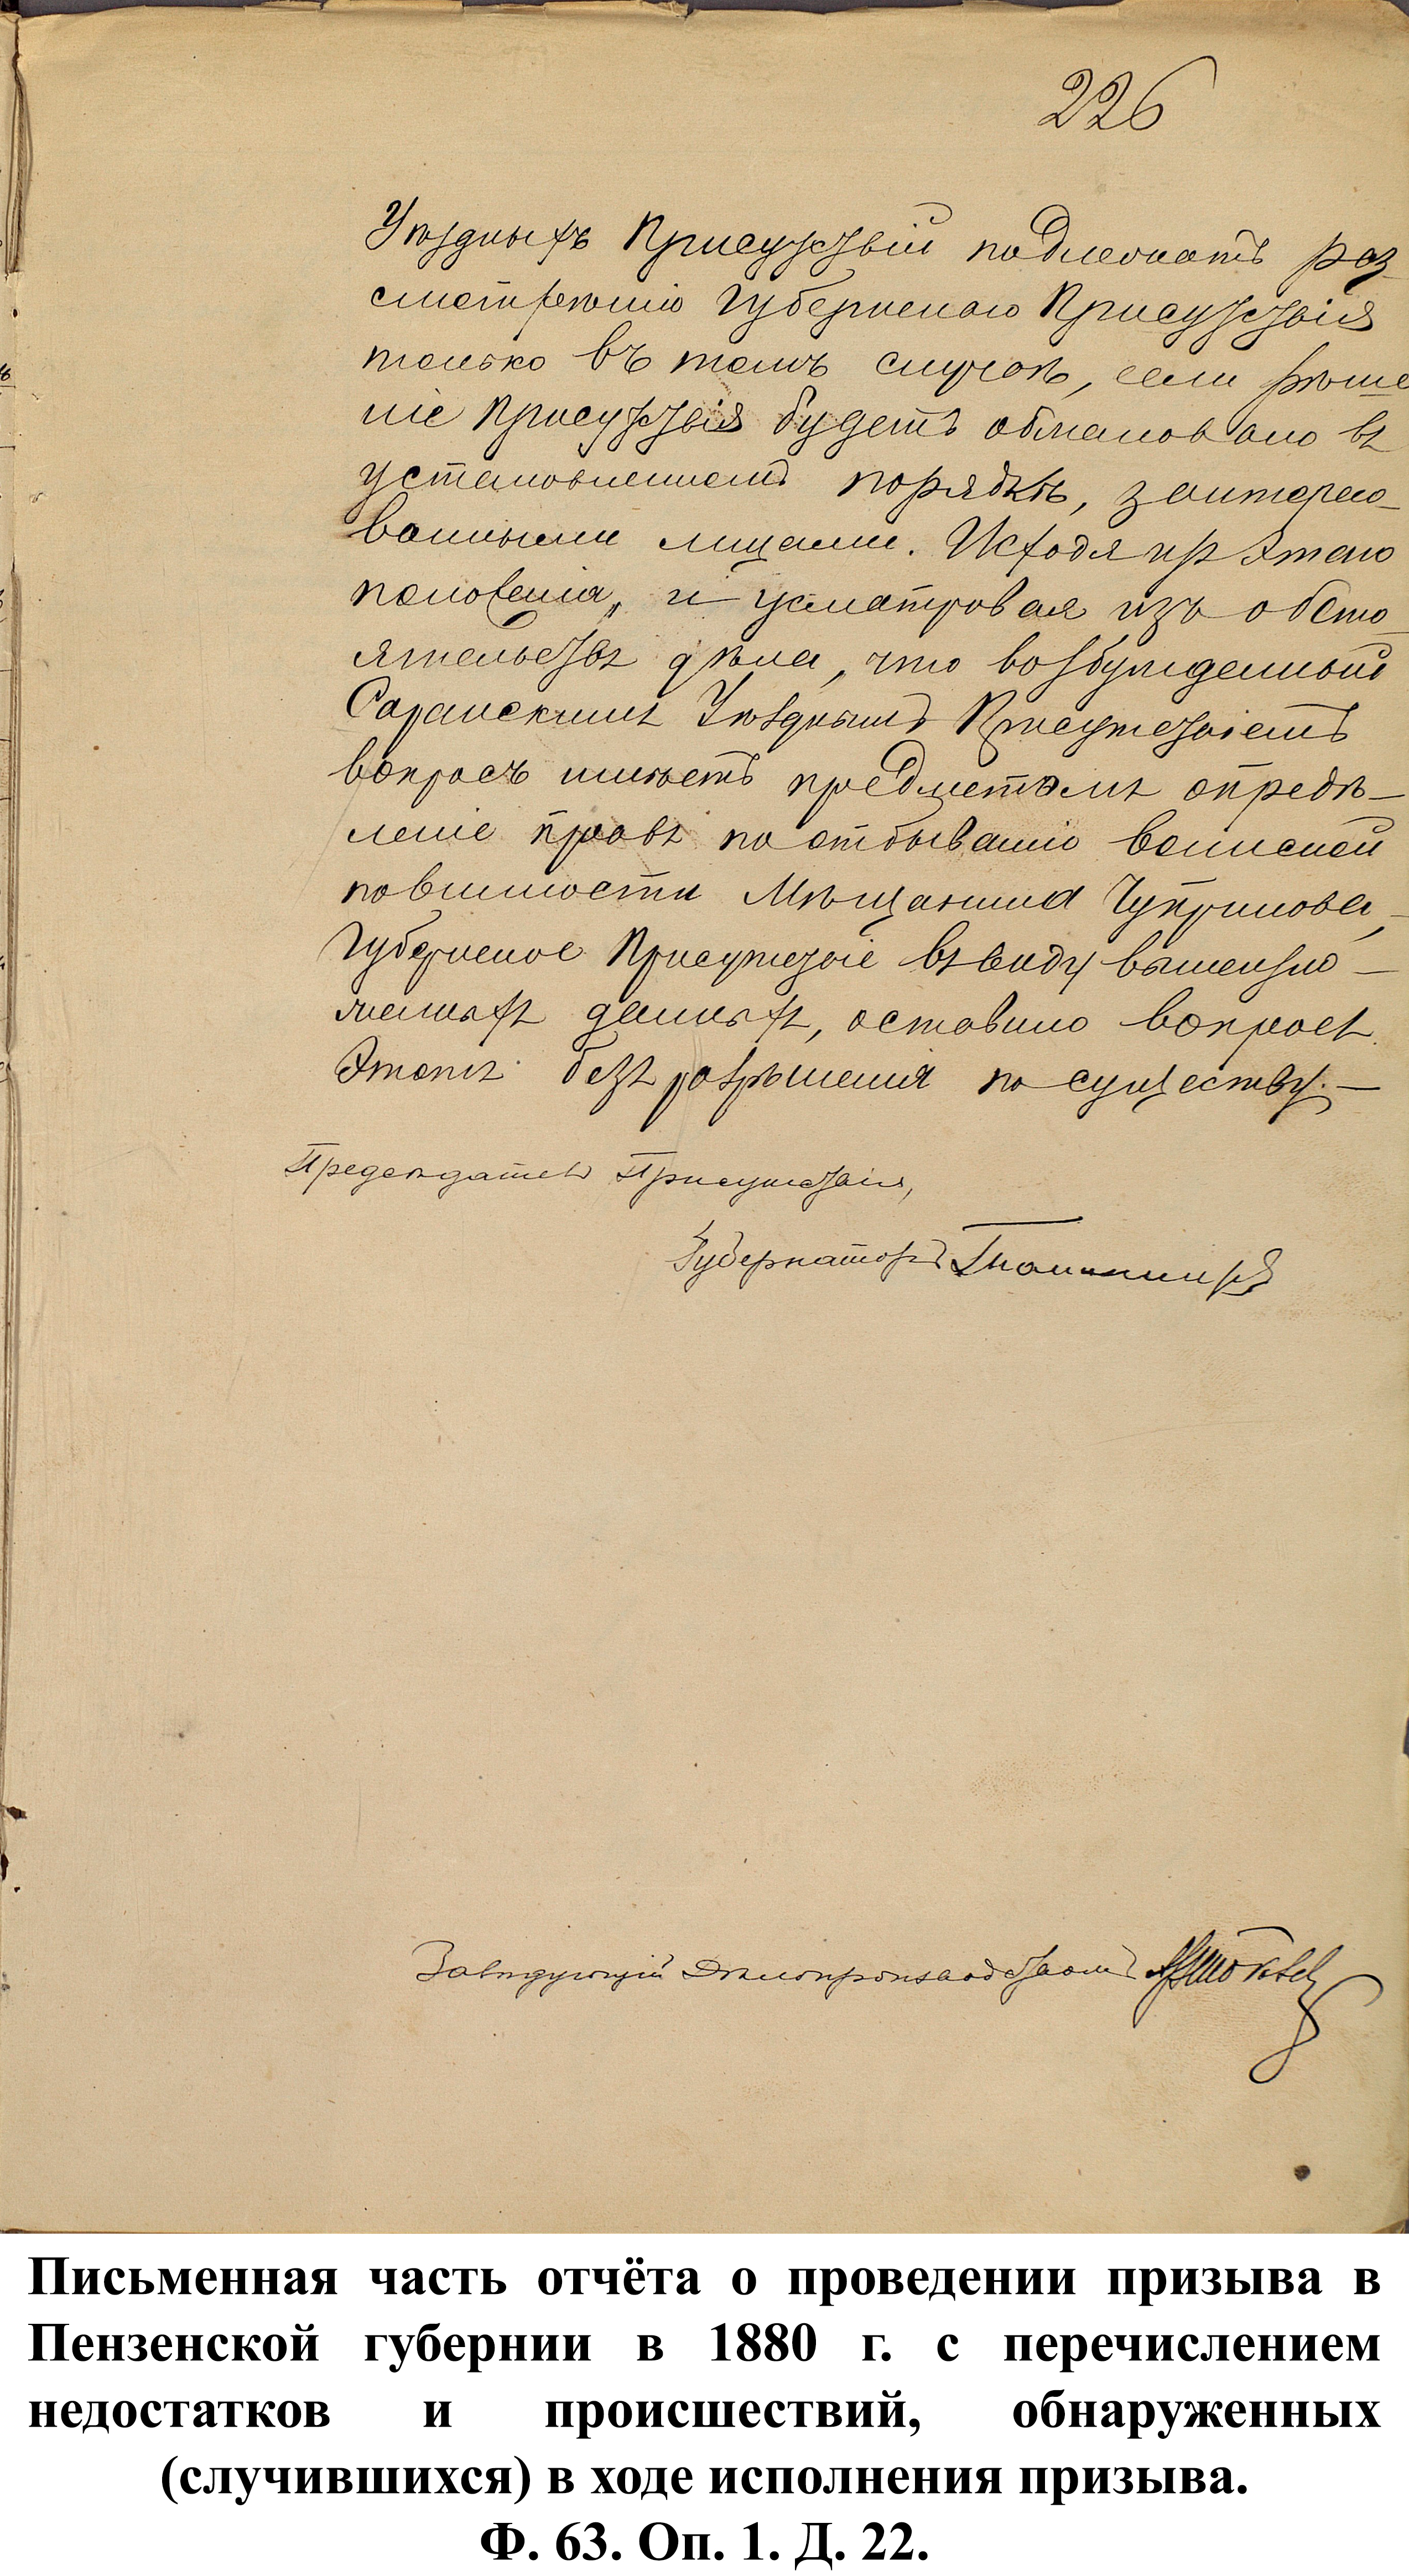 226
Уѣздныхъ Присутствій подлежатъ раз-
смотрѣнію Губернскаго Присутствія
только въ томъ случаѣ, если рѣше
ніе Присутствія будетъ обжаловано въ
установленномъ порядкѣ, заинтересо-
ванными лицами. Исходя изъ этого
положенія, и усматривая изъ обсто-
ятельствъ дѣла, что возбужденный
Саранскимъ Уѣзднымъ Присутствіемъ
вопросъ имѣетъ предметомъ опредѣ-
леніе правъ по отбыванію воинской
повинности Мѣщанина Чупринова,-
Губернское Присутствіе въ виду вышеизло-
женныхъ данныхъ, оставило вопросъ
этотъ безъ разрѣшенія по существу.-
Предсѣдатель Присутствія,
Губернаторъ
Завѣдующій Дѣлопроизводствомъ
Письменная часть отчёта о проведении призыва в
Пензенской губернии в 1880 г. с перечислением
недостатков и происшествий, обнаруженных
(случившихся) в ходе исполнения призыва.
Ф. 63. Оп. 1. Д. 22.